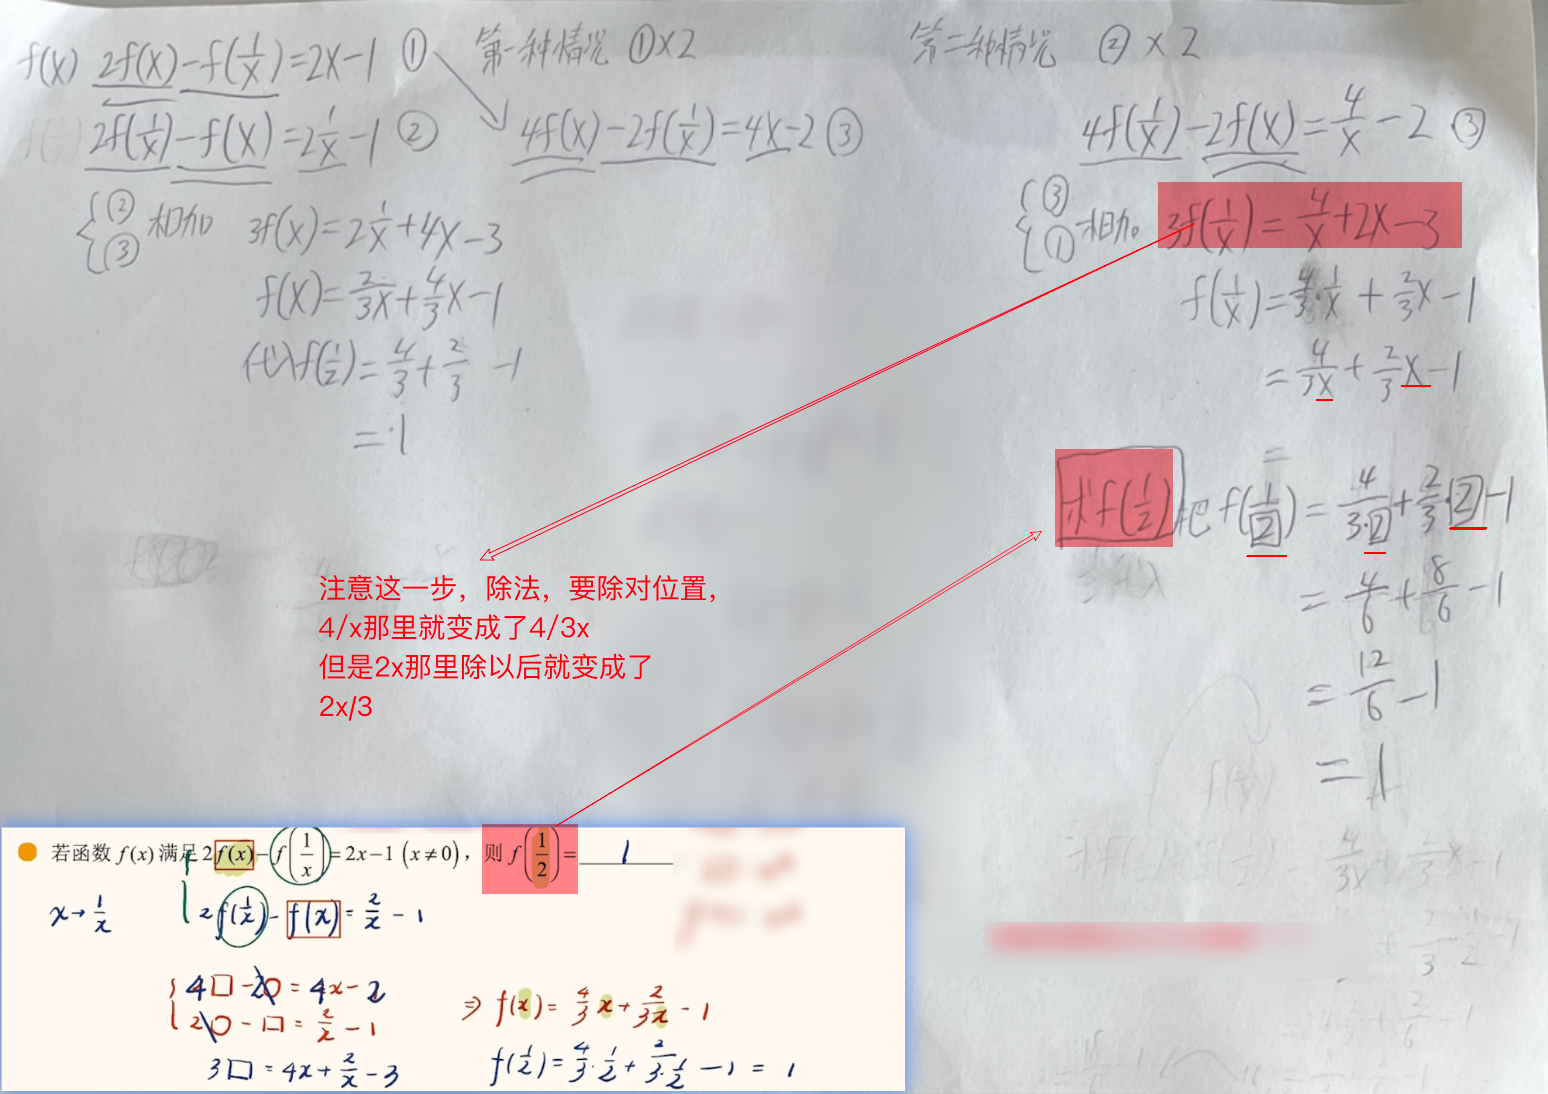 f(x) 2f(x)-f(1/x)=2x-1 ①
2f(1/x)-f(x)=2 1/x-1 ②
{② ③ 相加 3f(x)=2 1/x+4x-3
f(x)=2/3x+4/3x-1
代入f(1/2)=4/3+2/3 -1
=1
第一种情况 ①×2
4f(x)-2f(1/x)=4x-2 ③
第二种情况 ②×2
4f(1/x)-2f(x)=4/x-2 ③
{③ ① 相加 3f(1/x)=4/x+2x-3
f(1/x)=4/3·1/x+2/3x-1
=4/3x+2/3x-1
=
求f(1/2) 把f(1/2)=4/3·2+2/3·2-1
=4/6+8/6-1
=12/6-1
=1
注意这一步，除法，要除对位置，
4/x那里就变成了4/3x
但是2x那里除以后就变成了
2x/3
若函数 f(x) 满足 2f(x)-f(1/x)=2x-1 (x≠0)，则 f(1/2)=1
x→1/x 2f(1/x)-f(x)=2/x-1
{4□-2○=4x-2
2○-□=2/x-1
3□=4x+2/x-3
⇒ f(x)=4/3x+2/3x-1
f(1/2)=4/3·1/2+2/3·1/2-1=1